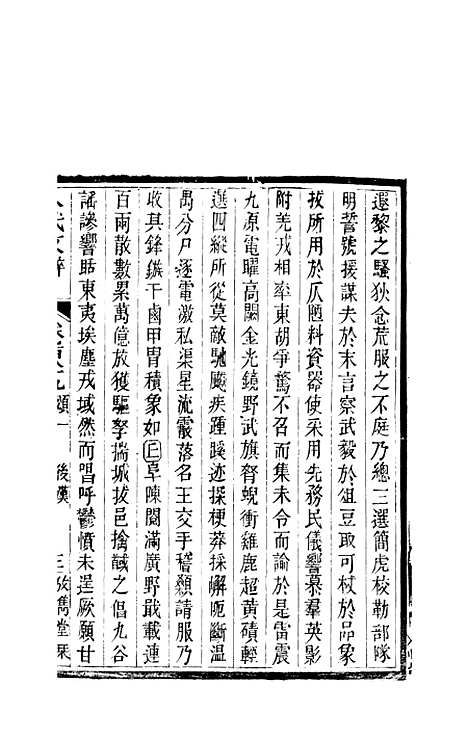 遝黎之騷狄念荒服之不庭乃總三選簡虎校勒部隊
明誓號援謀夫於末言察武毅於俎豆取可杖於品象
拔所用於仄陋料資器使采用先務民儀響慕羣英影
附羌戎相率東胡爭驚不召而集未令而諭於是雷震
九原電曜高闕金光鏡野武旗胥蜺衝雞鹿超黃磧輕
選四縱所從莫敵馳飈疾踵蹊迹探梗莽採嶰阨斷温
禺分尸逐電激私渠星流霰落名王交手稽顙請服乃
收其鋒鏃干鹵甲冑積象如丘阜陳閱滿廣野戢載連
百兩散數累萬億放獲驅孥揣城拔邑擒馘之倡九谷
謠謲響聒東夷埃塵戎域然而唱呼鬱憤未逞厥願甘
頌一 後漢 攸雋堂栞